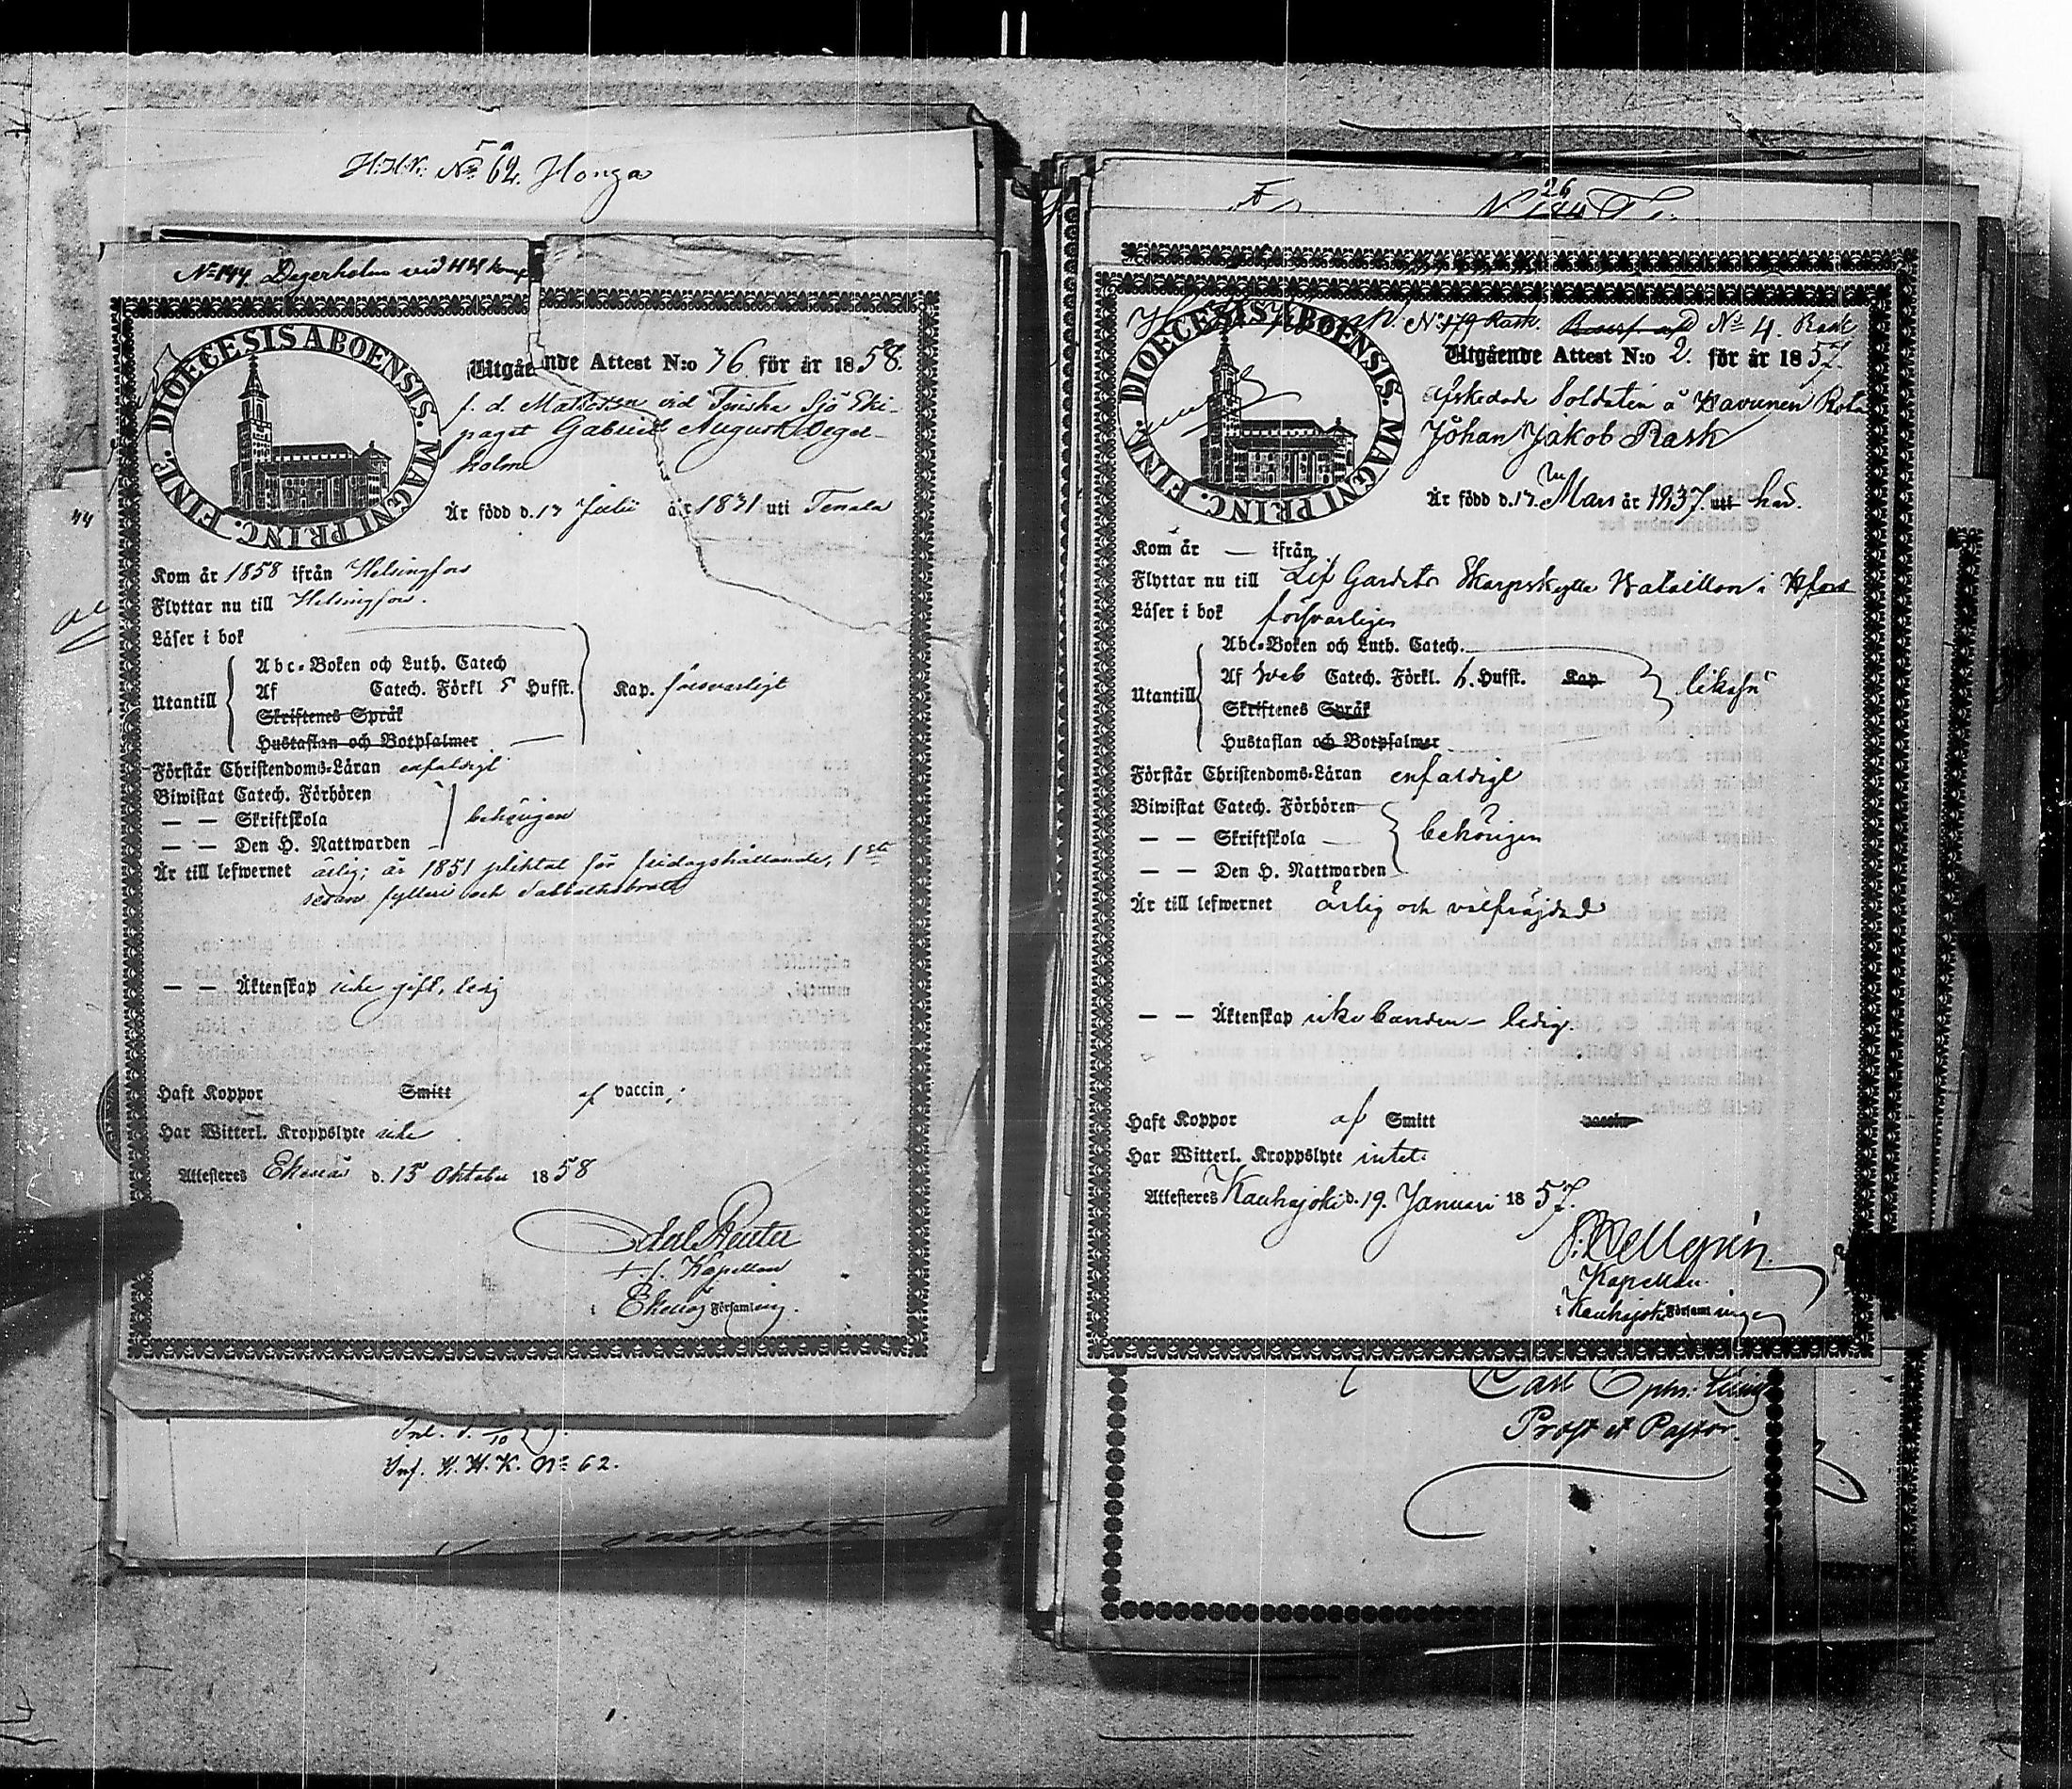 H.H.K. No 62. Honga
No 144. Degerholm vid HH komp
DIOECESIS ABOENSIS. MAGNI PRINC. FINL.
Utgående Attest N:o 76 för år 1858.
f. d. Matrosen vid Finska Sjö Eki-
paget Gabriel August Deger-
holm
Är född d. 17 Julii år 1831 uti Tenala
Kom år 1858 ifrån Helsingfors
Flyttar nu till Helsingfors.
Läser i bok
Utantill
Abc-Boken och Luth. Catech
Af Catech. Förkl 5 Hufst. Kap. försvarligt
Skriftenes Språk
Hustaflan och Botpsalmer
Förstår Christendoms-Läran enfaldigt
Biwistat Catech. Förhören
— — Skriftskola behörigen
— — Den H. Nattwarden
Är till lefwernet ärlig; år 1851 pliktat för 1sta
sedan fylleri och sabbathsbrott
— — Äktenskap icke gift, ledig
Haft Koppor Smitt af vaccin.
Har Witterl. Kroppslyte icke
Attesteres Ekenäs d. 15 Oktober 1858
Reuter
t. f. Kapellan
i Ekenäs Församling.
Inf. H. H. K. No 62.
44
26
No 179 Rask. No 4. Rask
DIOECESIS ABOENSIS. MAGNI PRINC. FINL.
Utgående Attest N:o 2. för år 1857.
afskedade Soldaten å Havunen Rota
Johan Jakob Rask
Är född d. 17. Mars år 1837. uti här.
Kom år — ifrån
Flyttar nu till Lif Gardets Skarpskytte Bataillon i Hfors
Läser i bok försvarligen
Utantill
Abc-Boken och Luth. Catech.
Af Sveb Catech. Förkl. 6. Hufst. Kap likaså
Skriftenes Språk
Hustaflan och Botpsalmer
Förstår Christendoms-Läran enfaldigt
Biwistat Catech. Förhören
— — Skriftskola behörigen
— — Den H. Nattwarden
Är till lefwernet ärlig och välfräjdad
— — Äktenskap icke bunden - ledig.
Haft Koppor af Smitt vaccin
Har Witterl. Kroppslyte intet
Attesteres Kauhajoki d. 19. Januari 1857.
Hellgrén
Kapellan
i Kauhajoki Församlingen
Carl
Prost et Pastor.